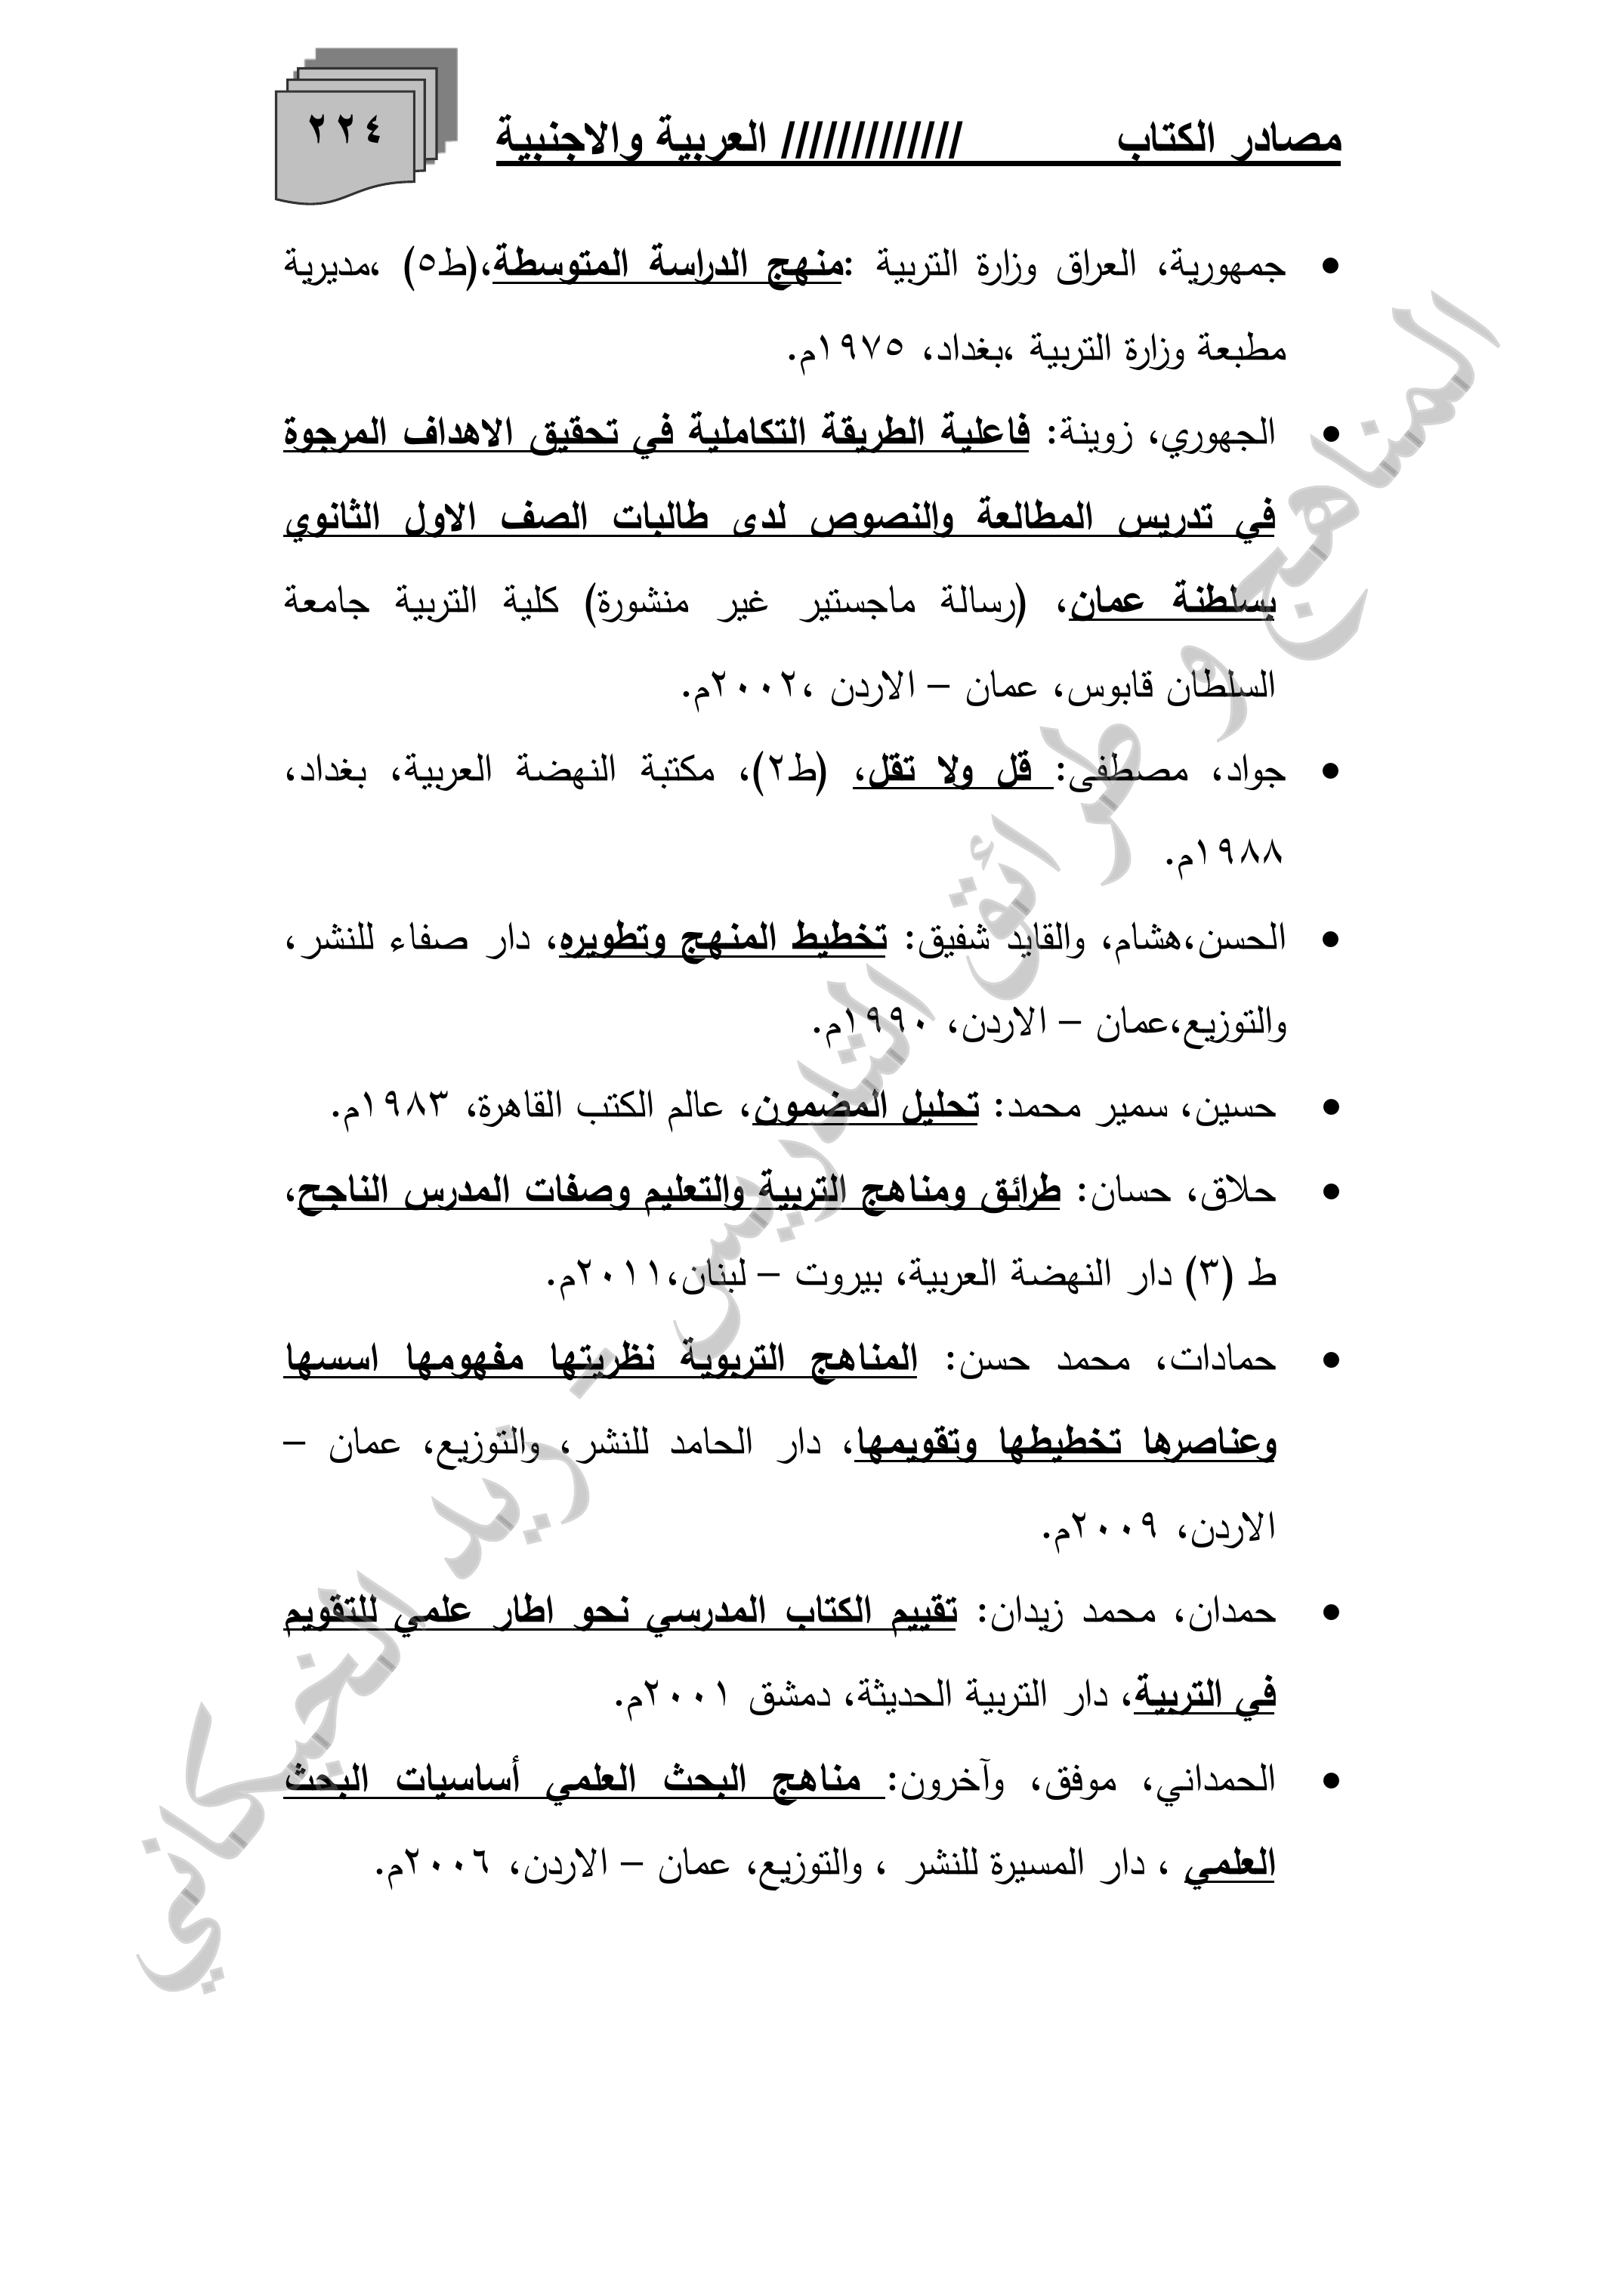 مصادر الكتاب ///////////// العربية والاجنبية
٢٢٤
• جمهورية، العراق وزارة التربية :منهج الدراسة المتوسطة،(ط٥) ،مديرية
مطبعة وزارة التربية ،بغداد، ١٩٧٥م.
• الجهوري، زوينة: فاعلية الطريقة التكاملية في تحقيق الاهداف المرجوة
في تدريس المطالعة والنصوص لدى طالبات الصف الاول الثانوي
بسلطنة عمان، (رسالة ماجستير غير منشورة) كلية التربية جامعة
السلطان قابوس، عمان – الاردن ،٢٠٠٢م.
• جواد، مصطفى: قل ولا تقل، (ط٢)، مكتبة النهضة العربية، بغداد،
١٩٨٨م.
• الحسن،هشام، والقايد شفيق: تخطيط المنهج وتطويره، دار صفاء للنشر،
والتوزيع،عمان – الاردن، ١٩٩٠م.
• حسين، سمير محمد: تحليل المضمون، عالم الكتب القاهرة، ١٩٨٣م.
• حلاق، حسان: طرائق ومناهج التربية والتعليم وصفات المدرس الناجح،
ط (٣) دار النهضة العربية، بيروت – لبنان،٢٠١١م.
• حمادات، محمد حسن: المناهج التربوية نظريتها مفهومها اسسها
وعناصرها تخطيطها وتقويمها، دار الحامد للنشر، والتوزيع، عمان –
الاردن، ٢٠٠٩م.
• حمدان، محمد زيدان: تقييم الكتاب المدرسي نحو اطار علمي للتقويم
في التربية، دار التربية الحديثة، دمشق ٢٠٠١م.
• الحمداني، موفق، وآخرون: مناهج البحث العلمي أساسيات البحث
العلمي ، دار المسيرة للنشر ، والتوزيع، عمان – الاردن، ٢٠٠٦م.
المناهج و طرائق التدريس - زيد الخيكاني